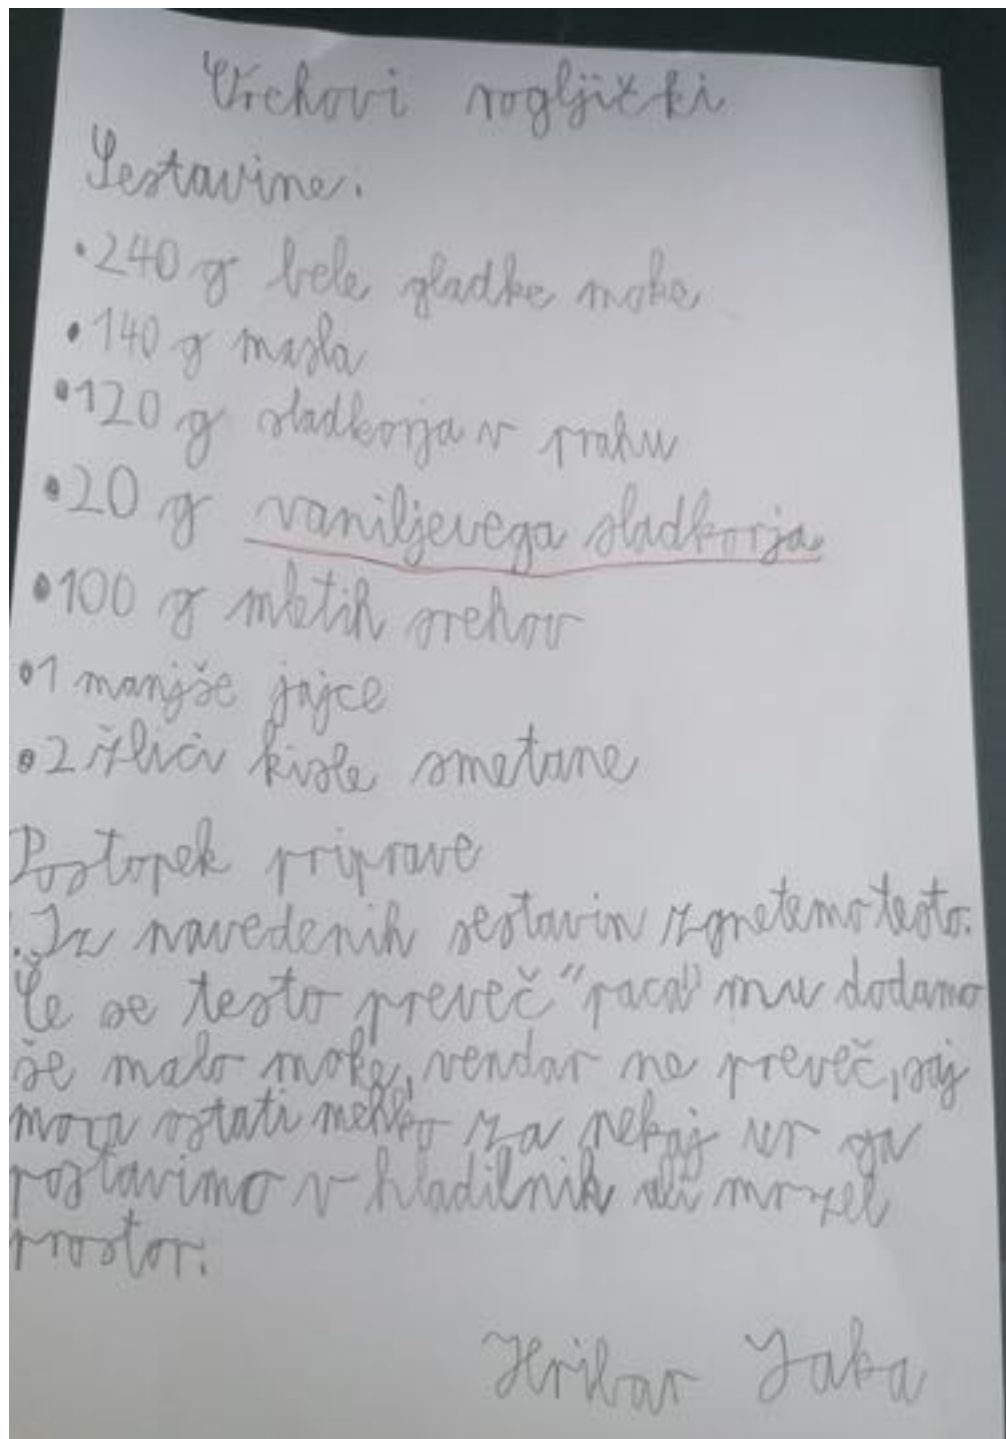 Orehovi rogljički
Sestavine:
• 240 g bele gladke moke
• 140 g masla
• 120 g sladkorja v prahu
• 20 g vaniljevega sladkorja
• 100 g mletih orehov
• 1 manjše jajce
• 2 žlici kisle smetane
Postopek priprave
. Iz navedenih sestavin zgnetemo testo.
Če se testo preveč "paca" mu dodamo
še malo moke, vendar ne preveč, saj
mora ostati mehko za nekaj ur ga
postavimo v hladilnik ali mrzel
prostor.
Hribar Jaka